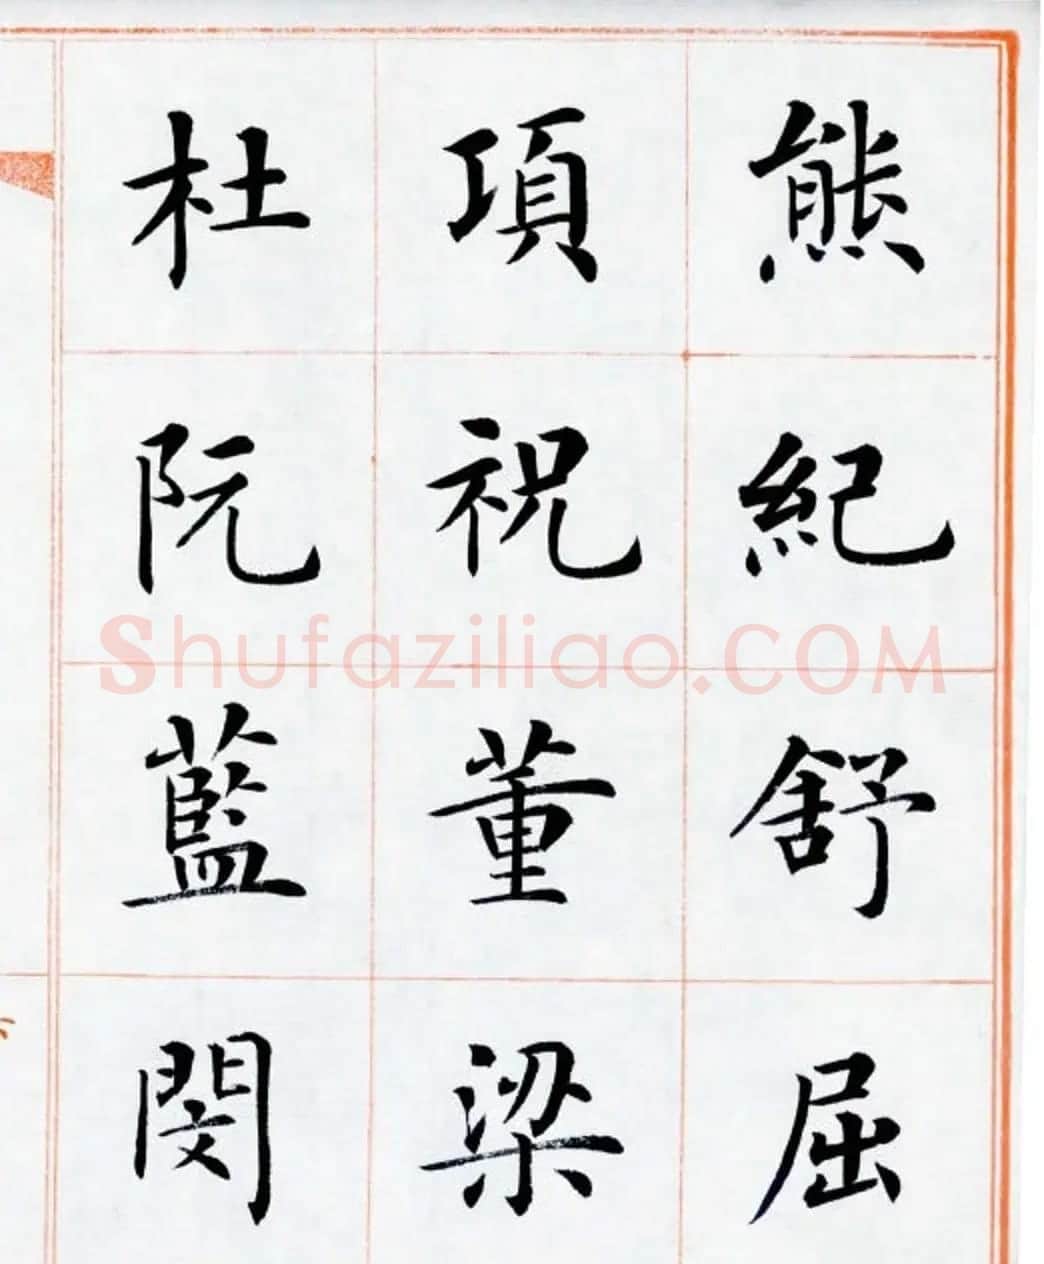 熊紀舒屈
項祝董梁
杜阮藍閔
Shufaziliao.COM